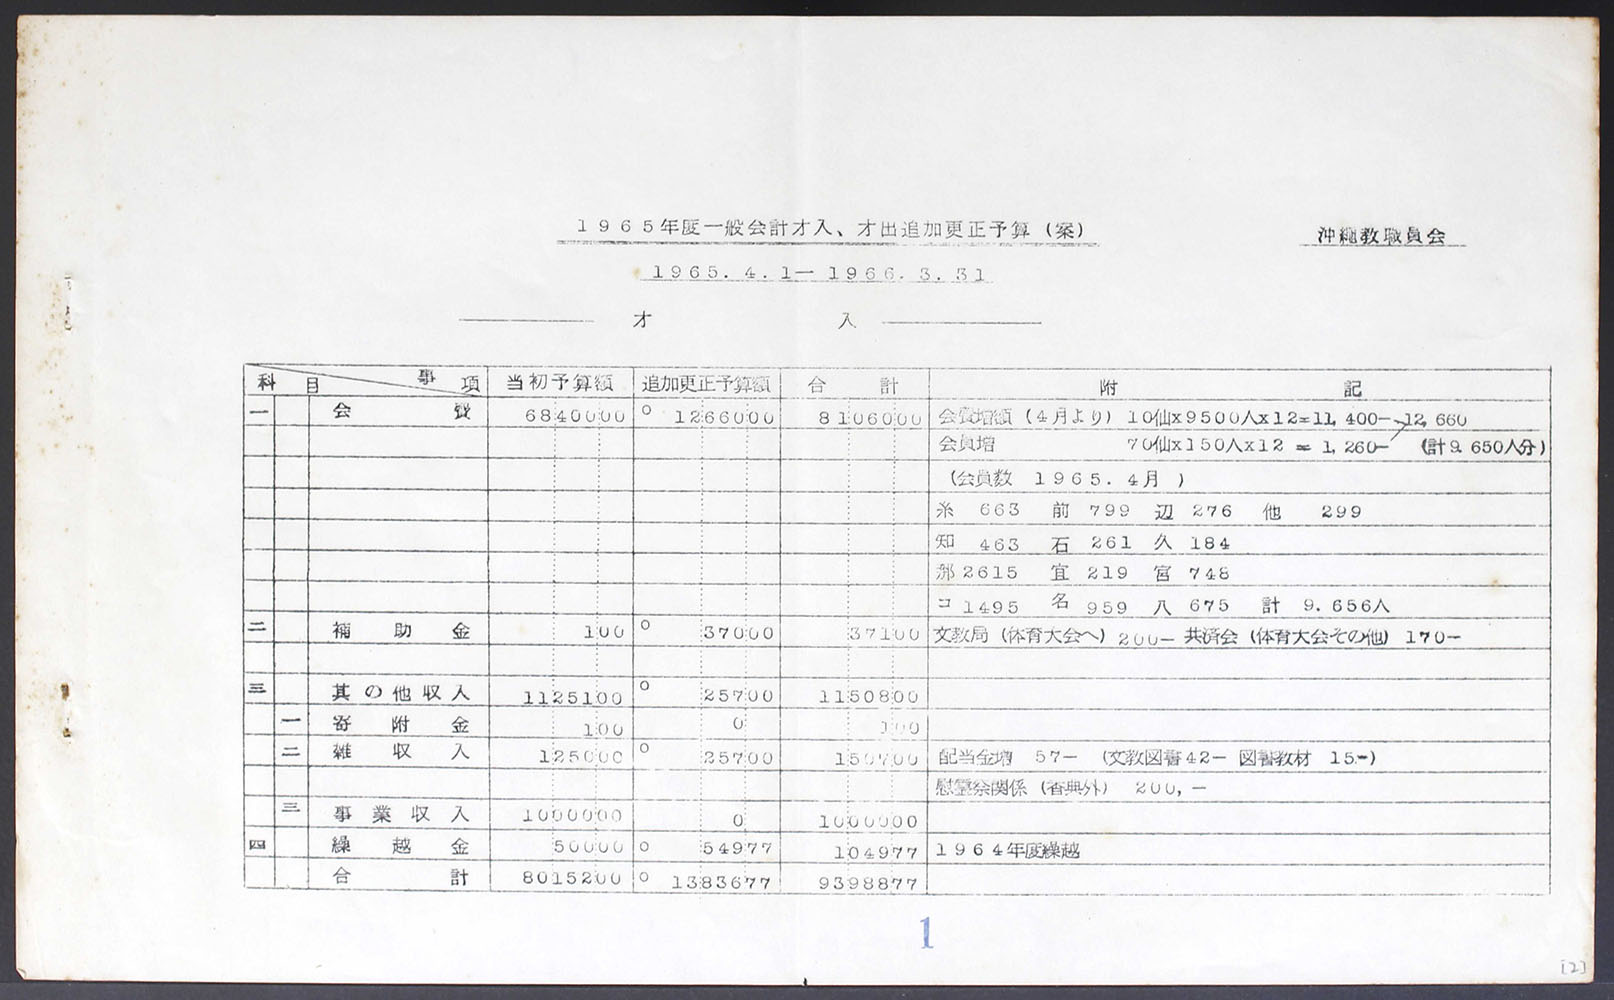 1965年度一般会計才入、才出追加更正予算(案)
沖縄教職員会
1965.4.1－1966.3.31
才 入
科 目 事 項 当初予算額 追加更正予算額 合 計 附 記
一 会 費 6840000 0 1266000 8106000 会費増額(4月より) 10仙x9500人x12=11,400- 12,660
会員増 70仙x150人x12 = 1,260- (計9.650人分)
(会員数 1965.4月 )
糸 663 前 799 辺 276 他 299
知 463 石 261 久 184
那 2615 宜 219 宮 748
コ 1495 名 959 八 675 計 9.656人
二 補 助 金 100 0 37000 37100 文教局(体育大会へ) 200- 共済会(体育大会その他) 170-
三 其の他収入 1125100 0 25700 1150800
一 寄 附 金 100 0 100
二 雑 収 入 125000 0 25700 150700 配当金増 57- (文教図書42- 図書教材 15-)
慰霊祭関係(香典外) 200,-
三 事 業 収 入 1000000 0 1000000
四 繰 越 金 50000 0 54977 104977 1964年度繰越
合 計 8015200 0 1383677 9398877
1
[2]